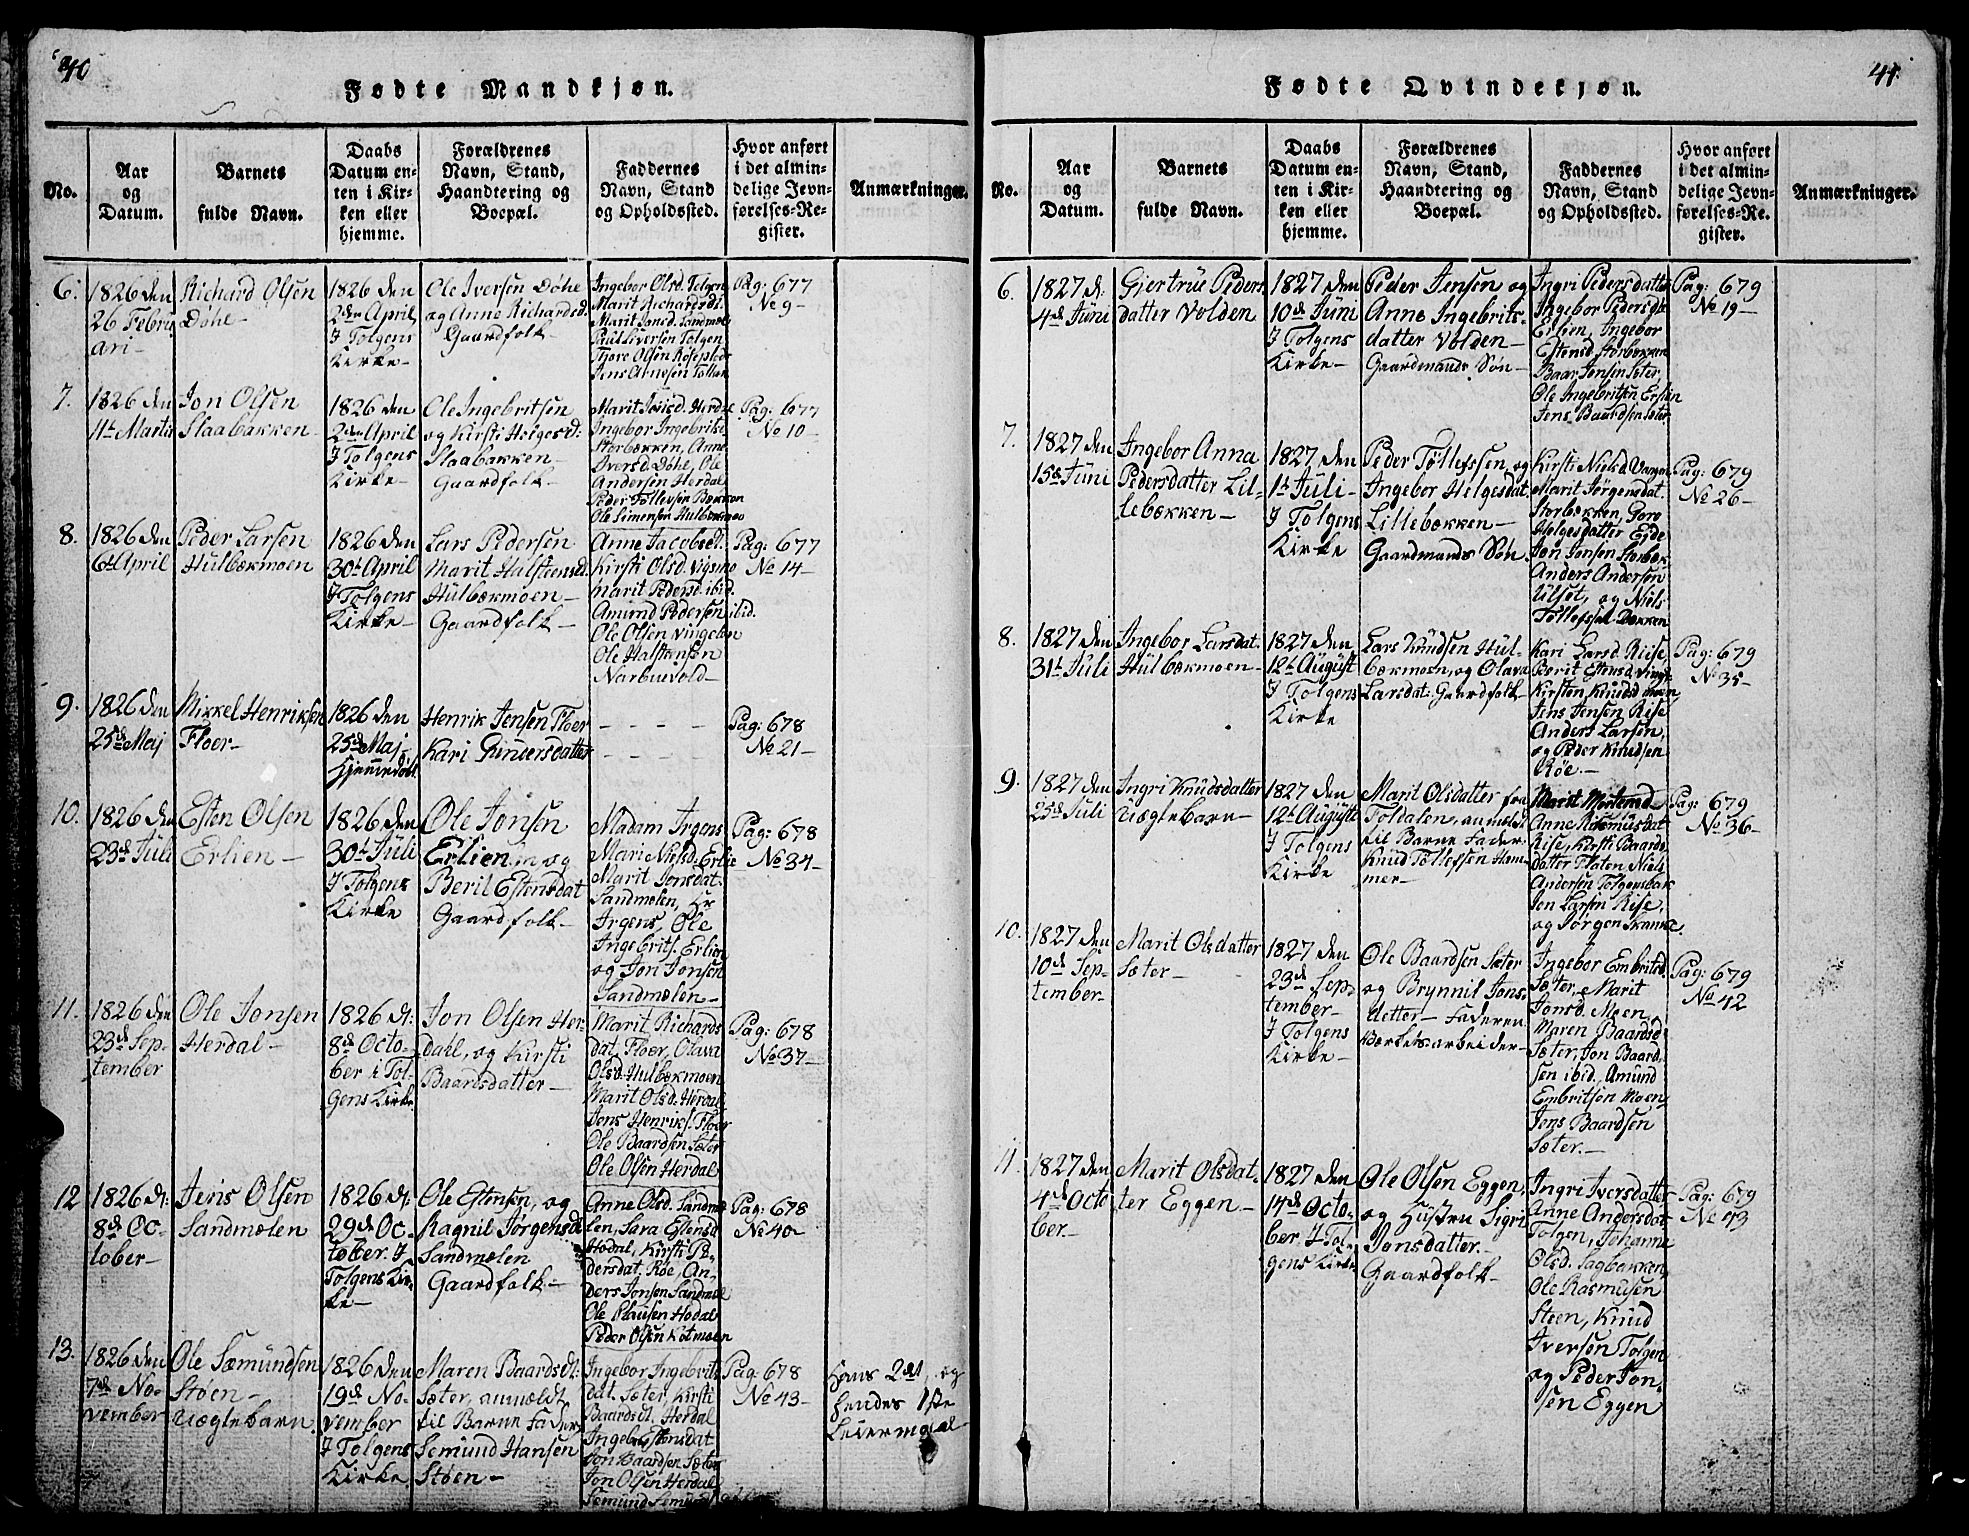 40
Fødte Mandkjøn.
No.
Aar
og
Datum.
Barnets
fulde Navn.
Daabs
Datum en-
ten i Kir-
ken eller
hjemme.
Forældrenes
Navn, Stand,
Haandtering og
Boepæl.
Faddernes
Navn, Stand
og Opholdssted.
Hvor anført
i det almin-
delige Jevn-
førelses-Re-
gister.
Anmærkninger.
6.
1826 den
26 Febru
ari-
Richard Olsen
Døhe-
1826 den
2den April
I Tolgens
Kirke-
Ole Iversen Døhe
og Anne Richardsd.
Gaardfolk-
Ingebor Olsd. Tolgen
Marit Richardsd.
Marit Jonsd. Sandmæl
Poul Iversen Tolgen
Jens Arnesen
Pag: 677
No 9-
7.
1826 den
11te Martii
Jon Olsen
Slaabakken-
1826 den
2den April
I Tolgens
Kirke-
Ole Ingebritsen
og Kirsti Helgesd:
Slaabakken-
Gaardfolk-
Marit Jonsd. Herdal
Ingebor Ingebrits
Storbækken, Anne
Iversd. Døhe, Ole
Andersen Herdal
Peder Tollevsen Bækken
Ole Simensen Hulbækmoe
Pag: 677
No 10-
8.
1826 den
6te April
Peder Larsen
Hulbækmoen
1826 den
30te April
I Tolgens
Kirke-
Lars Pedersen
Marit Halstensd.
Hulbækmoen-
Gaardfolk-
Anne Jacobsd.
Kirsti Olsd.
Marit Pedersd. ibid.
Amund Pedersen ibid.
Ole Olsen Vingelen
Ole Halstensen
Narbuevold-
Pag: 677
No 14-
9.
1826 den
25de Maj
Mikkel Henriksen
Floer-
1826 den
25de Maj
Hjemmedøbt
Henrik Jensen Floer
Kari Gunersdatter
- - - -
- - - -
Pag: 678
No 21-
10.
1826 den
23de Juli
Esten Olsen
Erlien-
1826 den
30te Juli
I Tolgens
Kirke
Ole Jonsen
Erlien og
Beril Estensdat
Gaardfolk-
Madam Irgens
Mari Nielsd. Erlie
Marit Jonsdat.
Sandmælen, Hr
Irgens, Ole
Ingebrits. Erlien
og Jon Jonsen
Sandmælen-
Pag: 678
No 34-
11.
1826 den
23de Sep-
tember
Ole Jonsen
Herdal-
1826 d:
8de Octo-
ber i Tol-
gens Kirke
Jon Olsen Her-
dahl, og Kirsti
Baardsdatter-
Marit Richards
dat. Floer, Olava
Olsd. Hulbækmoen
Marit Olsd. Herdal
Jens Henriks. Floer
Ole Baardsen Sæter
Ole Olsen Herdal
Pag: 678
No 37-
12
1826 d:
8de Oc-
tober-
Jens Olsen
Sandmælen
1826 d:
29de Oc
tober. I
Tolgens Kir-
ke-
Ole Estensen, og
Ragnil Jørgensd
Sandmælen
Gaardfolk-
Anne Olsd. Sandmæ
len, Sara Estensd
Hodal, Kirsti Pe-
dersdat. Røe, An-
ders Jonsen Sandmæl
Ole Paulsen Hodal
Peder Olsen Kotmoen
Pag: 678
No 40-
13.
1826 den
7de No-
vember
Ole Sæmundsen
Støen-
Uægtebarn
1826 den
19de No-
vember
I Tolgens
Kirke
Maren Baardsdt:
Sæter, anmeldt
til Barne Fader
Semund Hansen
Støen-
Ingebor Ingebrits
dat. Sæter, Kirsti
Baardsdt. Herdal
Ingebor Estensdat
Jon Baardsen Sæter
Jon Olsen Herdal
Sæmund
Pag: 678
No 43-
Hans 2det, og
hendes 1ste
Leiermaal-
41.
Fødte Qvindekjøn.
No.
Aar
og
Datum.
Barnets
fulde Navn.
Daabs
Datum en-
ten i Kir-
ken eller
hjemme.
Forældrenes
Navn, Stand,
Haandtering og
Boepæl.
Faddernes
Navn, Stand
og Opholdssted.
Hvor anført
i det almin-
delige Jevn-
førelses-Re-
gister.
Anmærkninger.
6.
1827 d:
4de Juni
Gjertrue Peders
datter Volden
1827 den
10de Juni
I Tolgens
Kirke-
Peder Jensen og
Anne Ingebrits-
datter Volden-
Gaardmands Søn-
Ingri Pedersdatter
Ingebor Pedersdt
Erlien, Ingebor
Estensd. Storbækken
Baar Jonsen Sæter
Ole Ingebritsen Erlien
Jens Baardsen Sæter
Pag: 679
No 19-
7.
1827 den
15de Juni
Ingebor Anna
Pedersdatter Lil-
lebækken-
1827 den
1te Juli-
I Tolgens
Kirke
Peder Tollefssen, og
Ingebor Helgesdat.
Lillebækken-
Gaardmands Søn.
Kirsti Nielsd.
Marit Jørgensdat.
Storbækken, Goro
Helgesdatter Eyde
Jon Jonsen Storbæk
Anders Andersen
Ulset, og Niels
Tollefssen Bækken
Pag: 679
No 26-
8.
1827 den
31te Juli
Ingebor Larsdat.
Hulbækmoen-
1827 den
12te August
I Tolgens
Kirke
Lars Knudsen Hul-
bækmoen, og Olava
Larsdat: Gaardfolk-
Kari Larsd. Riise,
Berit Estensd. Vingl
Kirsten Knudsd Moen
Jens Jensen Rise
Anders Larsen,
og Peder Knudsen
Røe.-
Pag: 679
No 35-
9.
1827 den
25de Juli
Ingri Knudsdatter
Uægtebarn-
1827 den
12te August
I Tolgens
Kirke
Marit Olsdatter fra
Foldalen, anmeldt
til Barne Fader
Knud Tollefssen Ham-
mer-
Marit Mortensd
Anne Rasmusdat
Rise, Kirsti Baards
datter Flaten, Niels
Andersen Tolgensbak
Jon Larsen Rise,
og Jørgen Skancke
Pag: 679
No 36-
10.
1827 den
10de Sep-
tember-
Marit Olsdatter
Sæter-
1827 den
23de Sep-
tember-
I Tolgens
Kirke-
Ole Baardsen Sæter
og Brynnil Jons-
datter- Faderen
Værketsarbeider-
Ingebor Embritsd.
Sæter, Marit
Jonsd. Moen,
Maren Baardsd
Sæter, Jon Baard-
sen ibid, Amund
Embritsen Moen,
Jens Baardsen
Sæter.-
Pag: 679
No 42
11.
1827 den
4de Octo
ber.-
Marit Olsdat-
ter Eggen-
1827 den
14de Octo-
ber. I Tol-
gens Kirke
Ole Olsen Eggen,
og Hustru Sigri
Jonsdatter.-
Gaardfolk-
Ingri Iversdatter
Anne Andersdat
Tolgen, Johanna
Olsd. Sagbakken,
Ole Rasmusen
Steen, Knud
Iversen Tolgen
og Peder Jon-
sen Eggen
Pag: 679
No 43